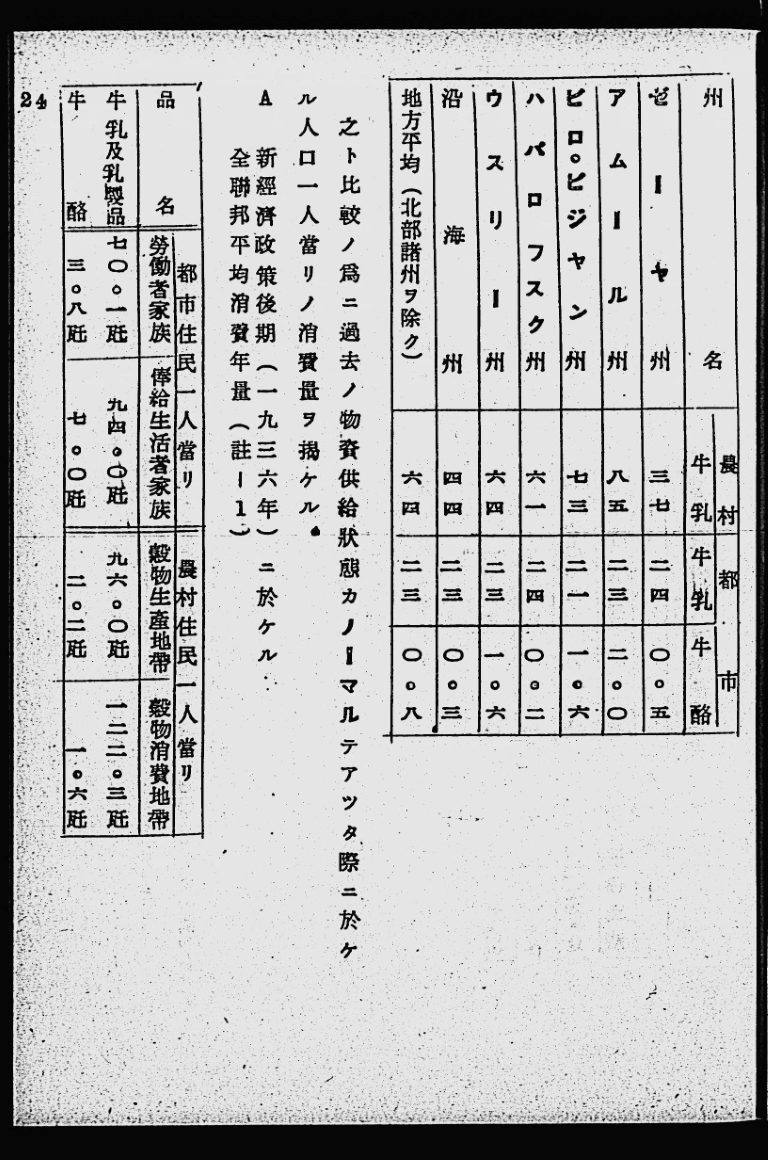 州名 農村 牛乳 都市 牛乳 牛酪
ゼーヤ州 三七 二四 〇。五
アムール州 八五 二三 二。〇
ビロ。ビジャン州 七三 二一 一。六
ハバロフスク州 六一 二四 〇。二
ウスリー州 六四 二三 一。六
沿海州 四四 二三 〇。三
地方平均(北部諸州ヲ除ク) 六四 二三 〇。八
之ト比較ノ爲ニ過去ノ物資供給狀態カノーマルテアツタ際ニ於ケ
ル人口一人當リノ消費量ヲ揭ケル。
A 新經濟政策後期(一九三六年)ニ於ケル
全聯邦平均消費年量(註ー1)
品名 都市住民一人當リ 農村住民一人當リ
勞働者家族 俸給生活者家族 穀物生產地帶 穀物消費地帶
牛乳及乳製品 七〇。一瓩 九四。〇瓩 九六。〇瓩 一二二。三瓩
牛酪 三。八瓩 七。〇瓩 二。二瓩 一。六瓩
24